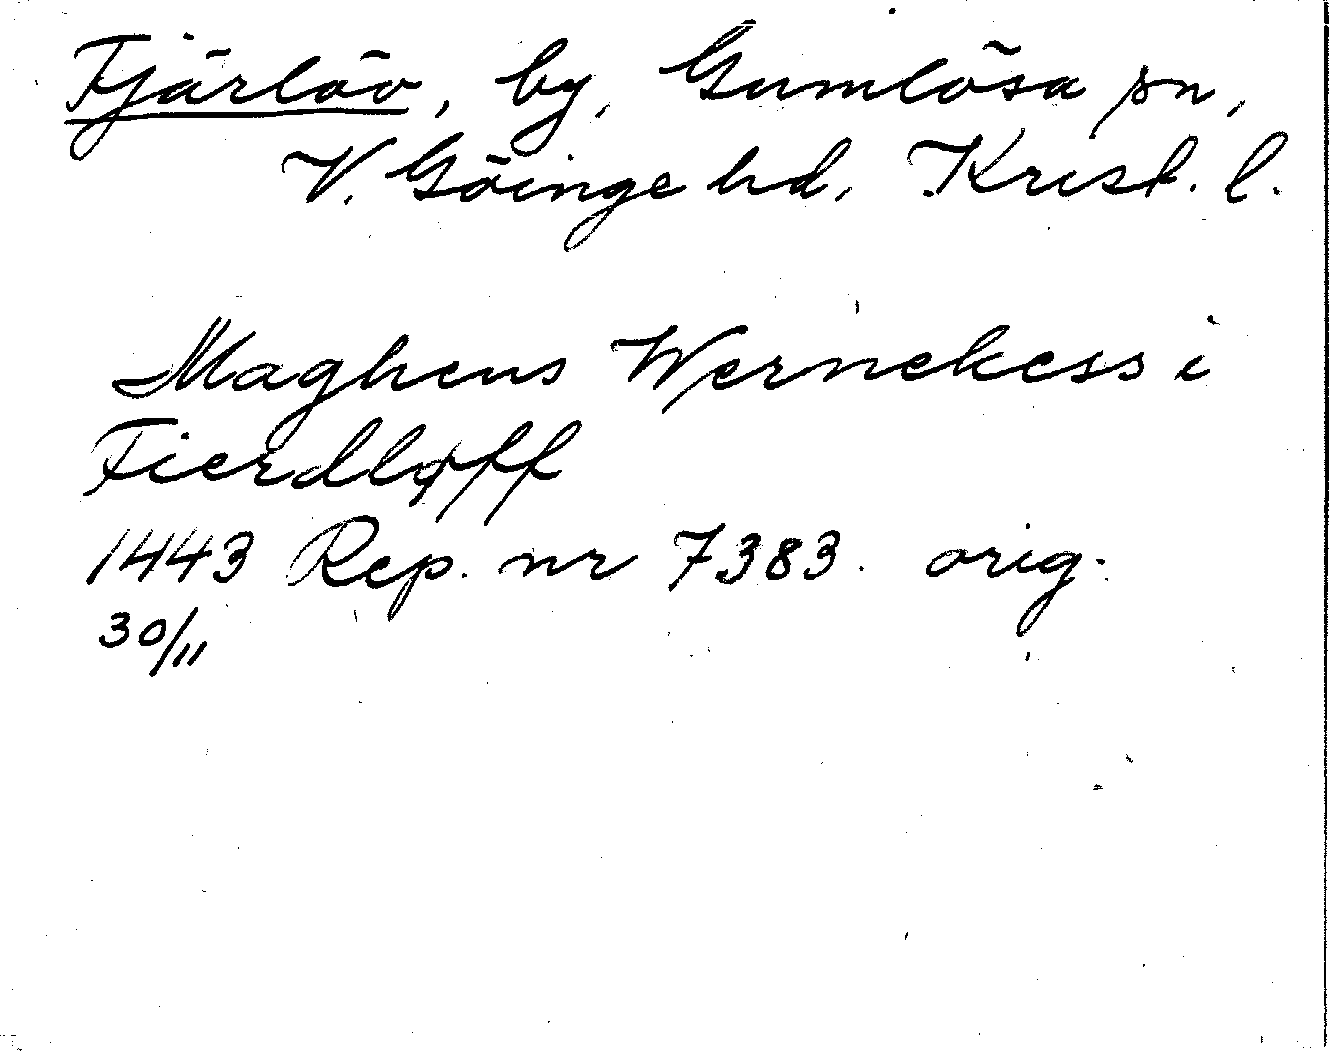 Tjärlöv, by, Gumlösa sn,
V. Göinge hd, Krist. l.
Magheus Wernekess i
Tierdløff
1443 Rep. nr 7383. orig.
30/11